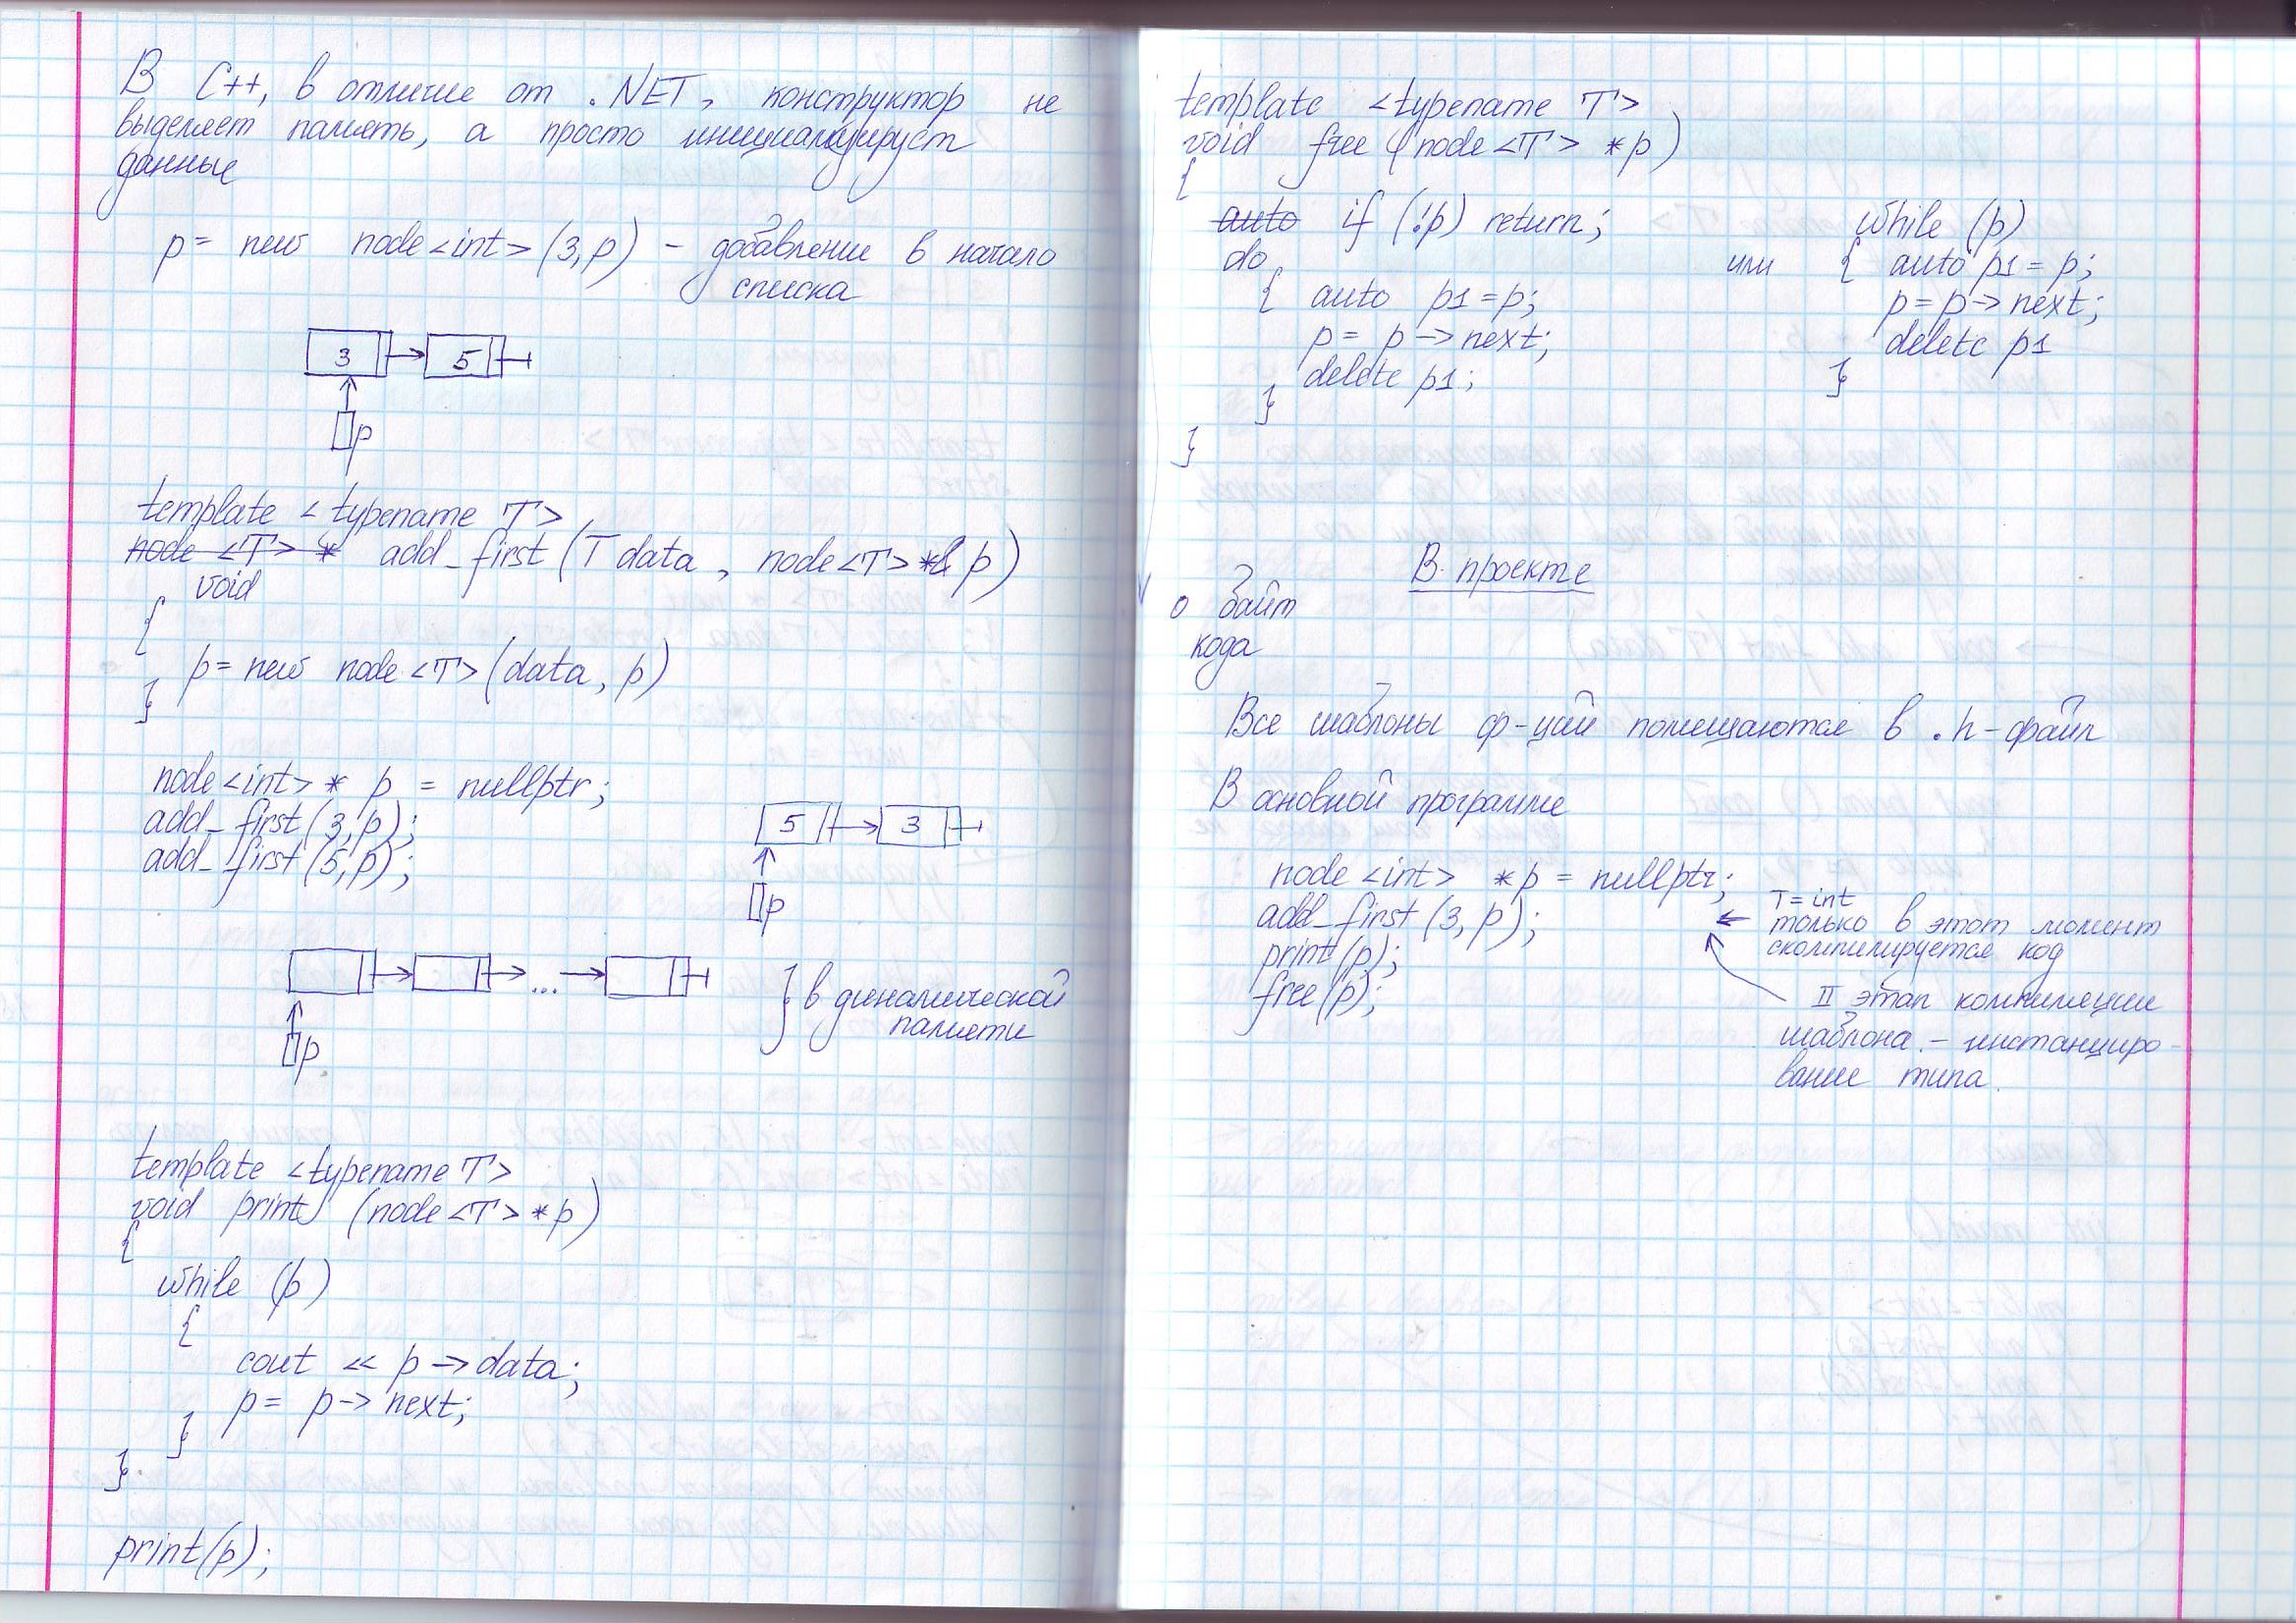 В C++, в отличие от .NET, конструктор не
выделяет память, а просто инициализирует
данные
p = new node<int>(3,p) - добавление в начало
списка
3 5
p
template <typename T>
node <T> * add_first (T data, node<T> *& p)
void
{
p = new node <T> (data, p)
}
node<int> * p = nullptr;
add_first(3,p);
add_first(5,p);
5 3
p
...
p
} в динамической
памяти
template <typename T>
void print (node<T> *p)
{
while (p)
{
cout << p -> data;
p = p -> next;
}
}
print(p);
template <typename T>
void free (node<T> *p)
{
auto if (!p) return;
do
{ auto p1 = p;
p = p -> next;
delete p1;
}
}
или
while (p)
{ auto p1 = p;
p = p -> next;
delete p1
}
В проекте
0 байт
кода
Все шаблоны ф-ций помещаются в .h-файл
В основной программе
node <int> *p = nullptr;
add_first (3, p);
print(p);
free(p);
T = int
только в этот момент
скомпилируется код
II этап компиляции
шаблона - инстанциро-
вание типа.